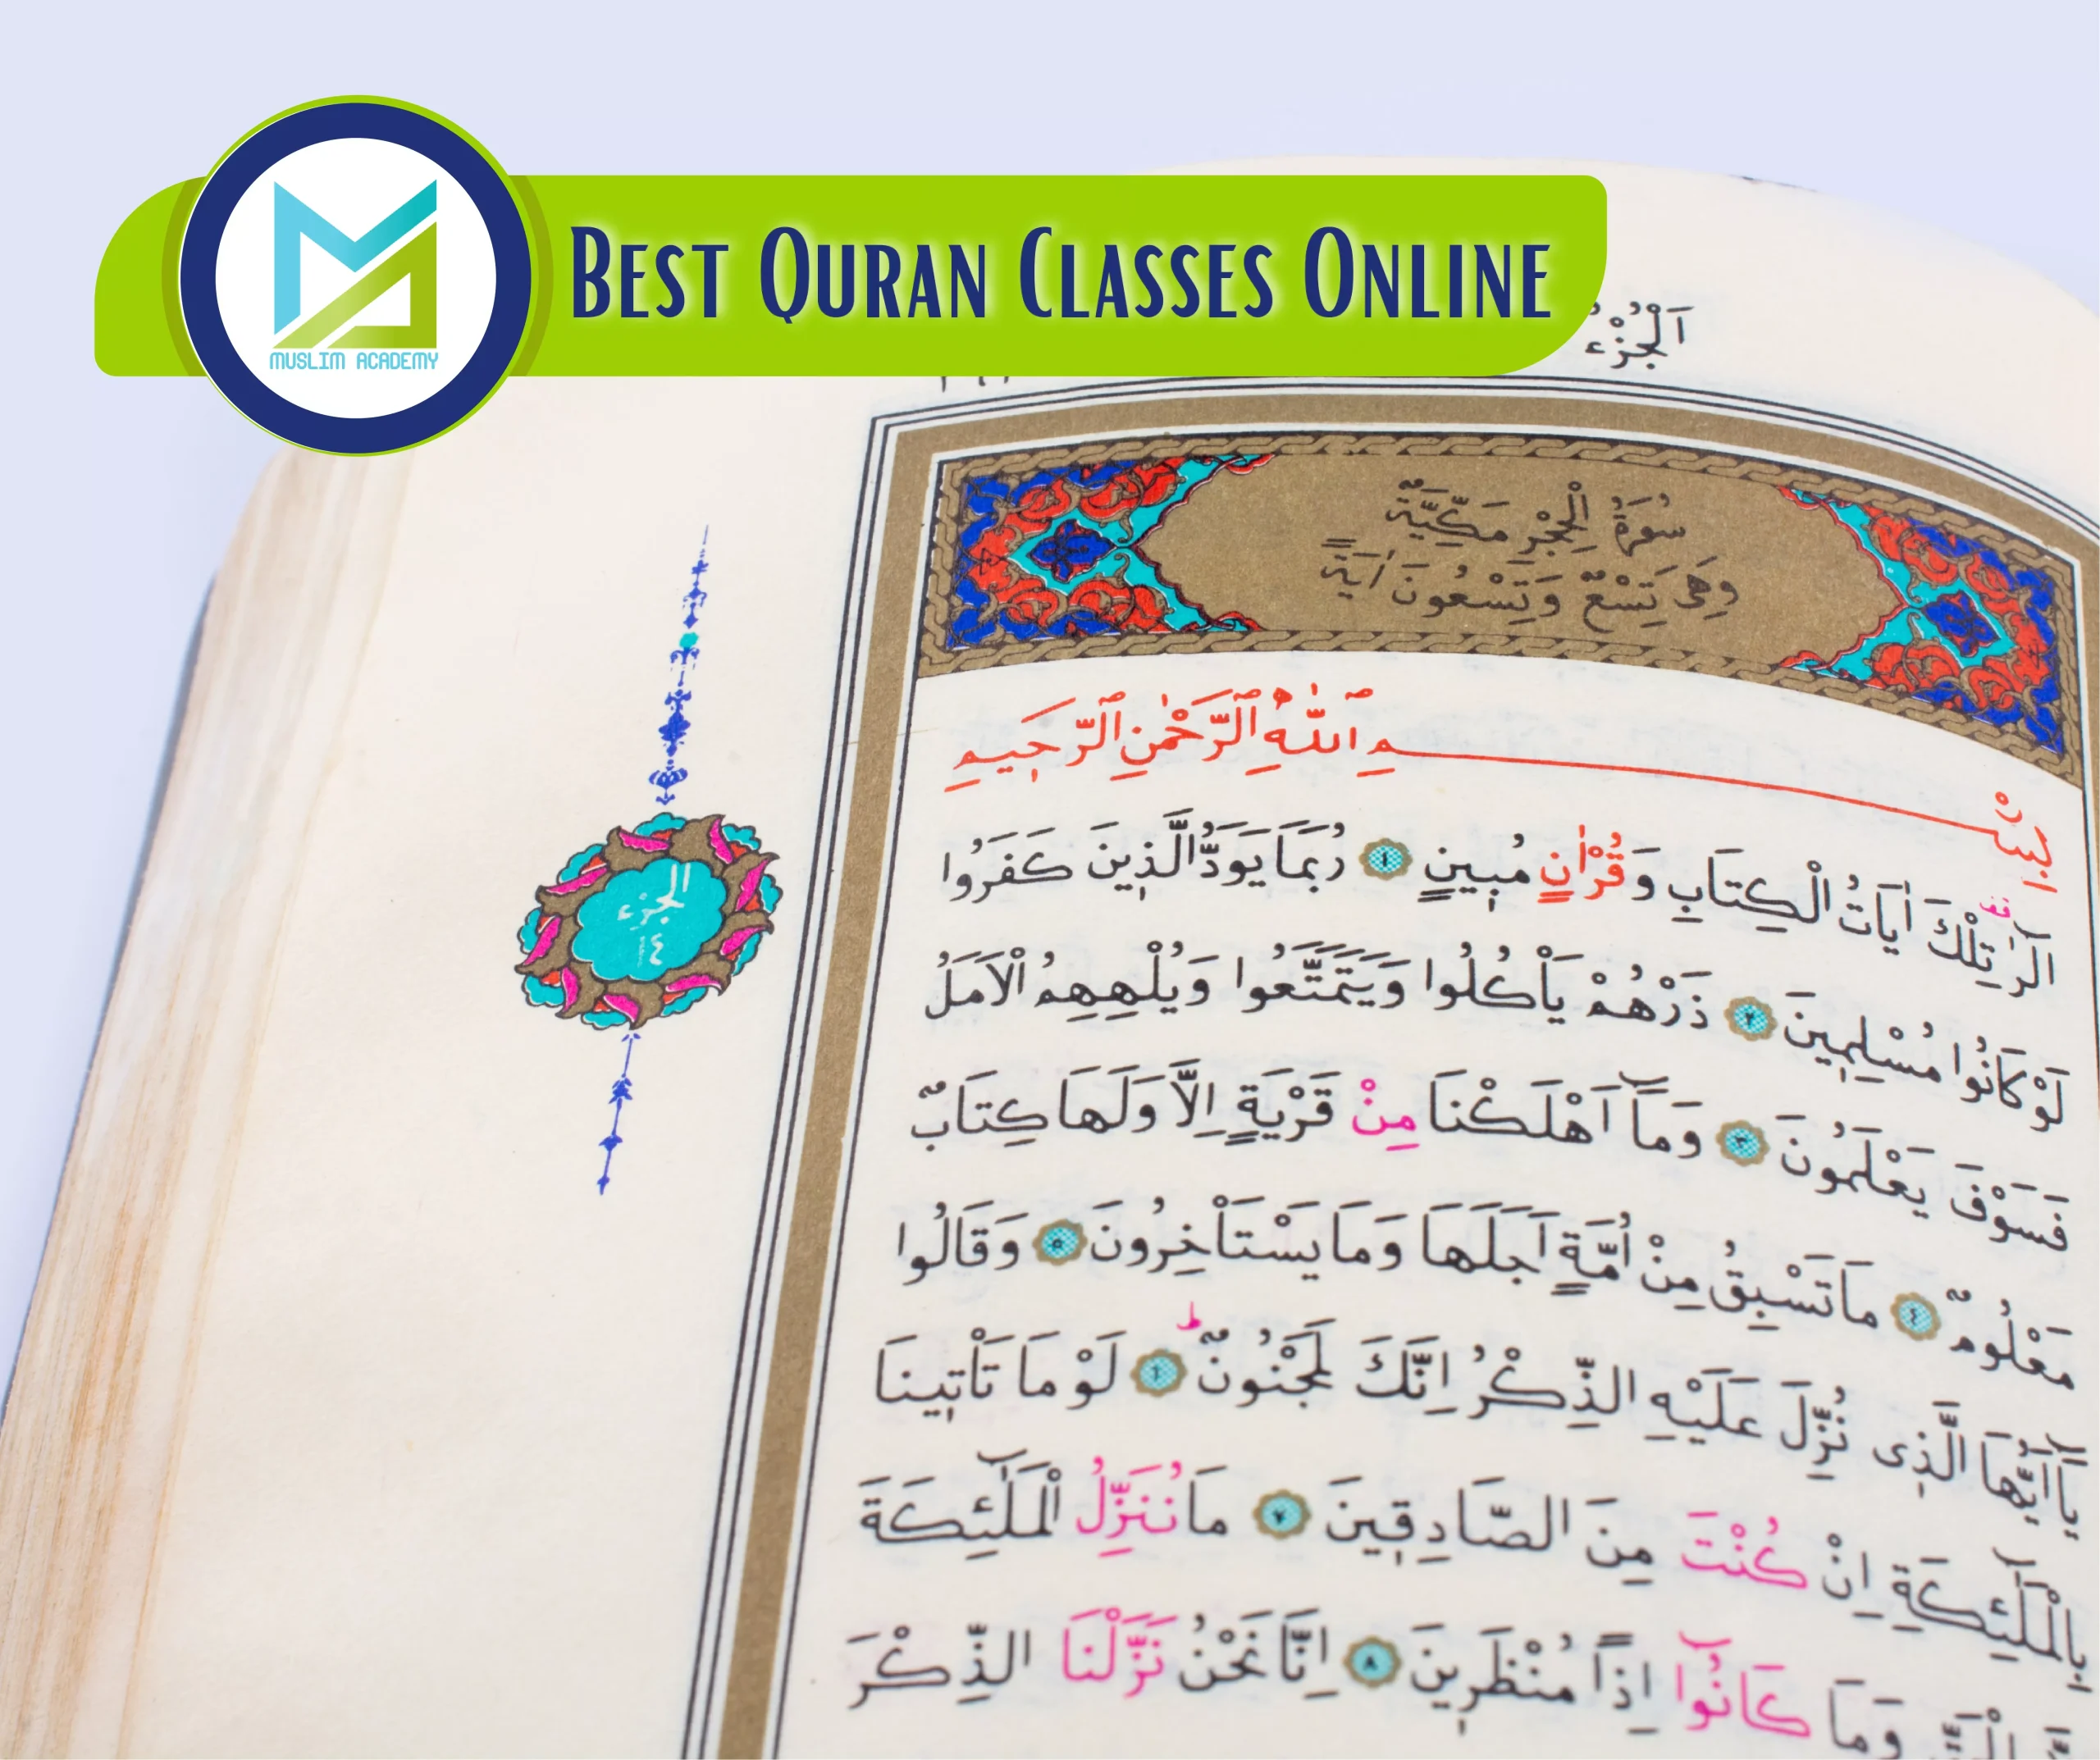 BEST QURAN CLASSES ONLINE
MUSLIM ACADEMY
اَلْجُزْءُ
سُورَةُ الْحِجْرِ مَكِّيَّةٌ
وَهِىَ تِسْعٌ وَتِسْعُونَ اٰيَةً
بِسْمِ اللّٰهِ الرَّحْمٰنِ الرَّحِيمِ
الٓرٰ تِلْكَ اٰيَاتُ الْكِتَابِ وَقُرْاٰنٍ مُبِينٍ ١ رُبَمَا يَوَدُّ الَّذِينَ كَفَرُوا
لَوْ كَانُوا مُسْلِمِينَ ٢ ذَرْهُمْ يَأْكُلُوا وَيَتَمَتَّعُوا وَيُلْهِهِمُ الْاَمَلُ
فَسَوْفَ يَعْلَمُونَ ٣ وَمَٓا اَهْلَكْنَا مِنْ قَرْيَةٍ اِلَّا وَلَهَا كِتَابٌ
مَعْلُومٌ ٤ مَا تَسْبِقُ مِنْ اُمَّةٍ اَجَلَهَا وَمَا يَسْتَأْخِرُونَ ٥ وَقَالُوا
يَٓا اَيُّهَا الَّذِى نُزِّلَ عَلَيْهِ الذِّكْرُ اِنَّكَ لَمَجْنُونٌ ٦ لَوْ مَا تَأْتِينَا
بِالْمَلٰٓئِكَةِ اِنْ كُنْتَ مِنَ الصَّادِقِينَ ٧ مَا نُنَزِّلُ الْمَلٰٓئِكَةَ
وَمَا كَانُٓوا اِذًا مُنْظَرِينَ ٨ اِنَّا نَحْنُ نَزَّلْنَا الذِّكْرَ
الجزء
١٤